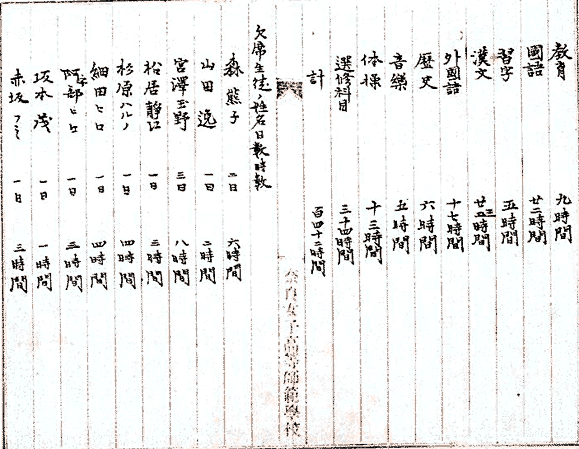 教育 九時間
國語 廿二時間
習字 五時間
漢文 廿三時間
外國語 十七時間
歴史 六時間
音樂 五時間
体操 十三時間
選修科目 三十四時間
計 百四十二時間
奈良女子高等師範學校
欠席生徒ノ姓名日数時数
森熊子 二日 六時間
山田逸 一日 二時間
宮澤玉野 三日 八時間
松居静江 一日 三時間
杉原ハルノ 一日 四時間
細田ヒロ 一日 四時間
阿部ヒロ 一日 三時間
坂本茂 一日 一時間
赤坂フミ 一日 三時間